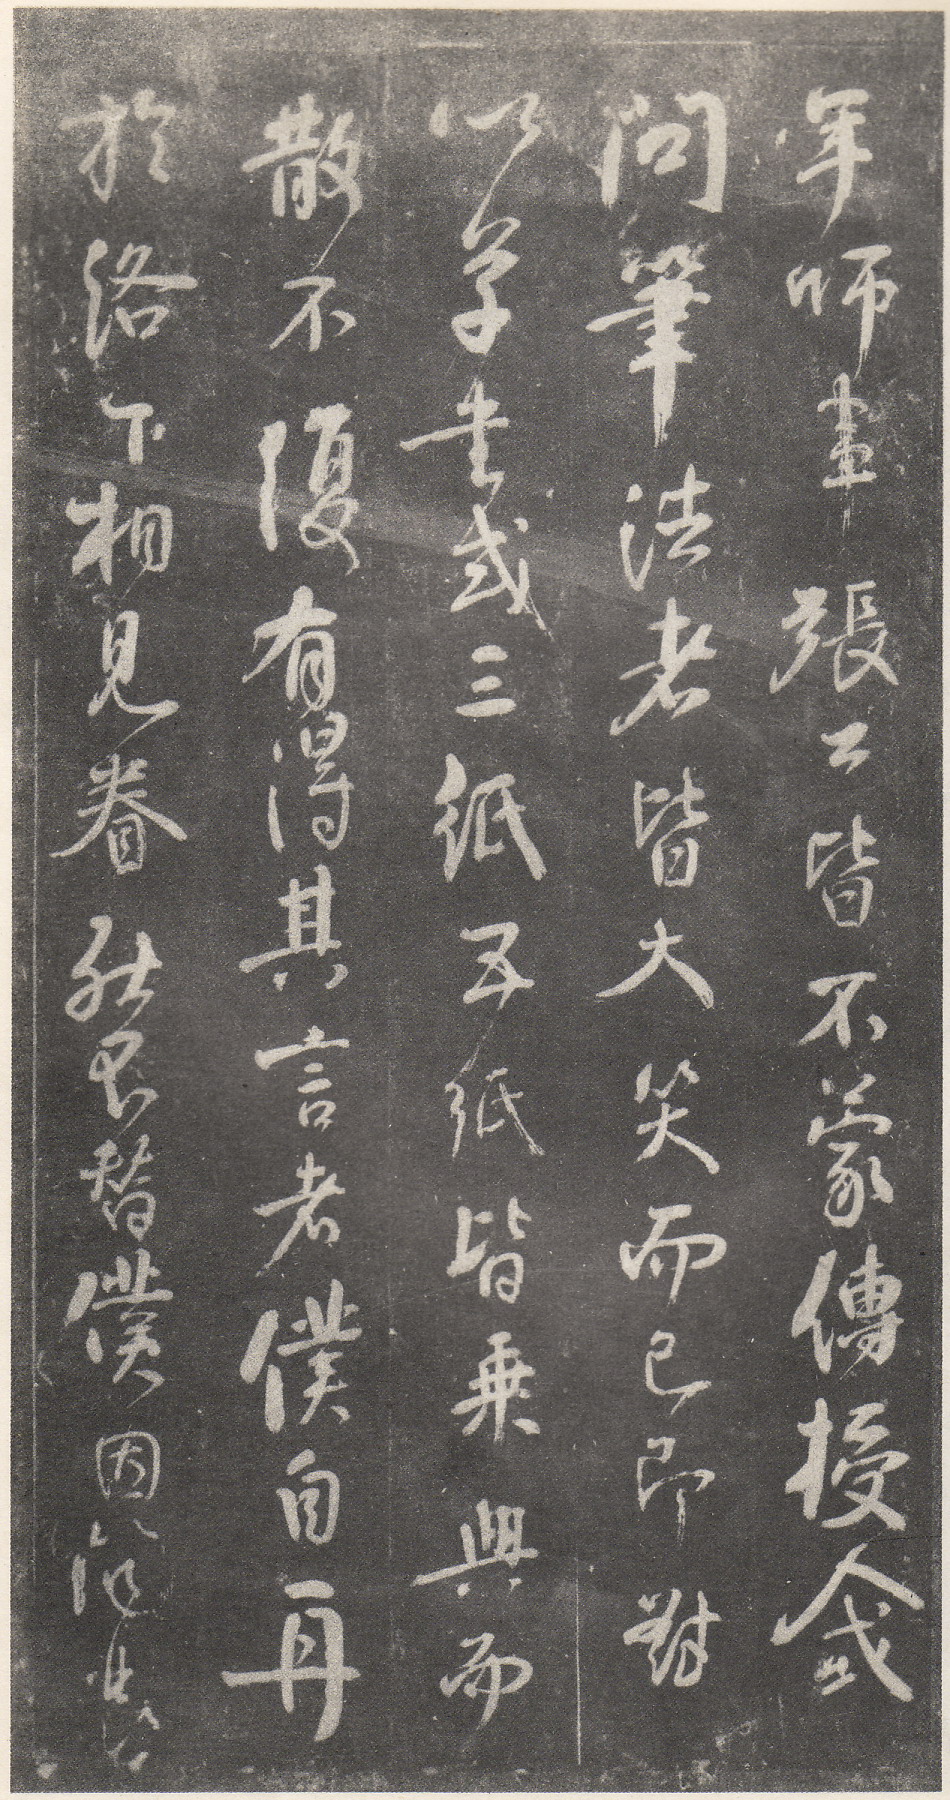 年師畫張公皆不蒙傳授人或
問筆法者皆大笑而已即對
以草書或三紙五紙皆乗興而
散不復有得其言者僕自再
於洛下相見眷然替僕因